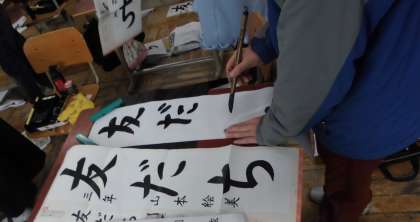 ち
友だ
友だち
三年 山本絵美
友だ